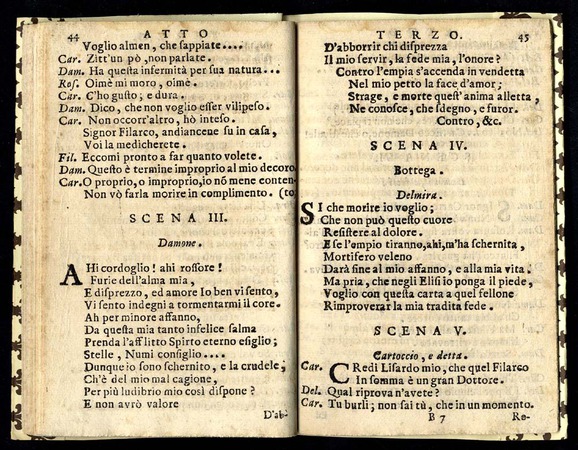 44 ATTO
Voglio almen, che sappiate....
Car. Zitt'un pò, non parlate.
Dam. Ha questa infermità per sua natura...
Ros. Oimè mi moro, oimè.
Car. C'ho gusto; e dura.
Dam. Dico, che non voglio esser vilipeso.
Car. Non occorr'altro, hò inteso.
Signor Filarco, andiancene su in casa,
Voi la medicherete.
Fil. Eccomi pronto a far quanto volete.
Dam. Questo è termine improprio al mio decoro
Car. O proprio, o improprio, io nō mene conten-
Non vò farla morire in complimento. (to
SCENA III.
Damone.
AHi cordoglio! ahi rossore!
Furie dell'alma mia,
E disprezzo, ed amore Io ben vi sento,
Vi sento indegni a tormentarmi il core.
Ah per minore affanno,
Da questa mia tanto infelice salma
Prenda l'afflitto Spirto eterno esiglio;
Stelle, Numi consiglio....
Dunque io sono schernito, e la crudele;
Ch'è del mio mal cagione,
Per più ludibrio mio così dispone?
E non avrò valore
D'ab-
TERZO. 45
D'abborrir chi disprezza
Il mio servir, la fede mia, l'onore?
Contro l'empia s'accenda in vendetta
Nel mio petto la face d'amor;
Strage, e morte quest'anima alletta,
Ne conosce, che sdegno, e furor.
Contro, &c.
SCENA IV.
Bottega.
Delmira.
SI che morire io voglio;
Che non può questo cuore
Resistere al dolore.
E se l'empio tiranno, ahi, m'ha schernita,
Mortifero veleno
Darà fine al mio affanno, e alla mia vita.
Ma pria, che negli Elisi io ponga il piede,
Voglio con questa carta a quel fellone
Rimproverar la mia tradita fede.
SCENA V.
Cartoccio, e detta.
Car. CRedi Lisardo mio, che quel Filarco
In somma è un gran Dottore.
Del. Qual riprova n'avete?
Car. Tu burli; non sai tù, che in un momento.
B 7 Re-